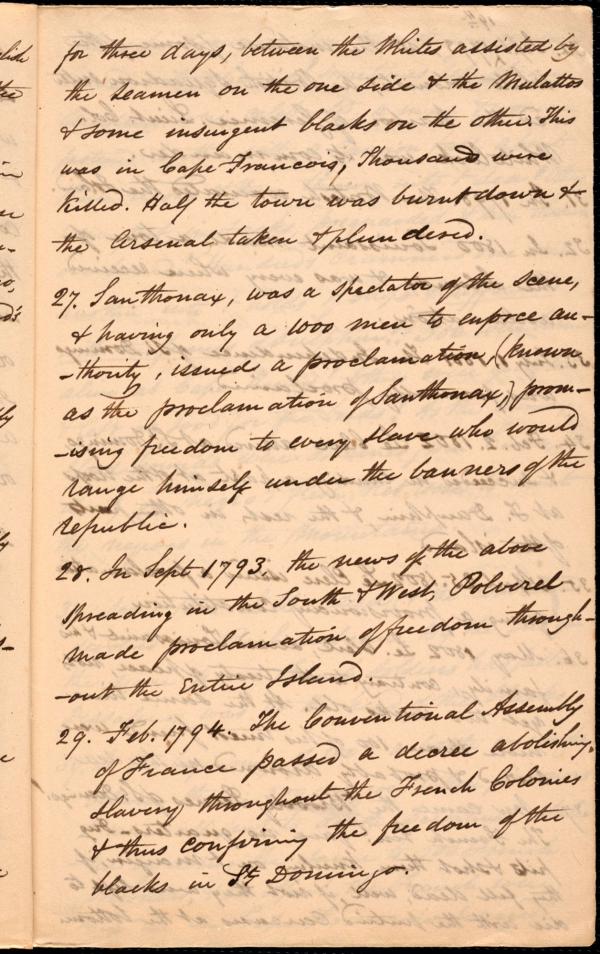 for three days, between the Whites assisted by
the seamen on the one side & the Mulattos
& some insurgent blacks on the other. This
was in Cape Francois, Thousands were
killed. Half the town was burnt down &
the Arsenal taken & plundered.
27. Santhonax, was a spectator of the scene,
& having only a 1000 men to enforce au-
-thority, issued a proclamation, (known
as the proclamation of Santhonax,) prom-
-ising freedom to every slave who would
range himself under the banners of the
republic.
28. In Sept 1793. the news of the above
spreading in the South & West, Polverel
made proclamation of freedom through-
-out the Entire Island.
29. Feb. 1794. The Conventional Assembly
of France passed a decree abolishing
slavery throughout the French Colonies
& thus confiring the freedom of the
blacks in St. Domingo.